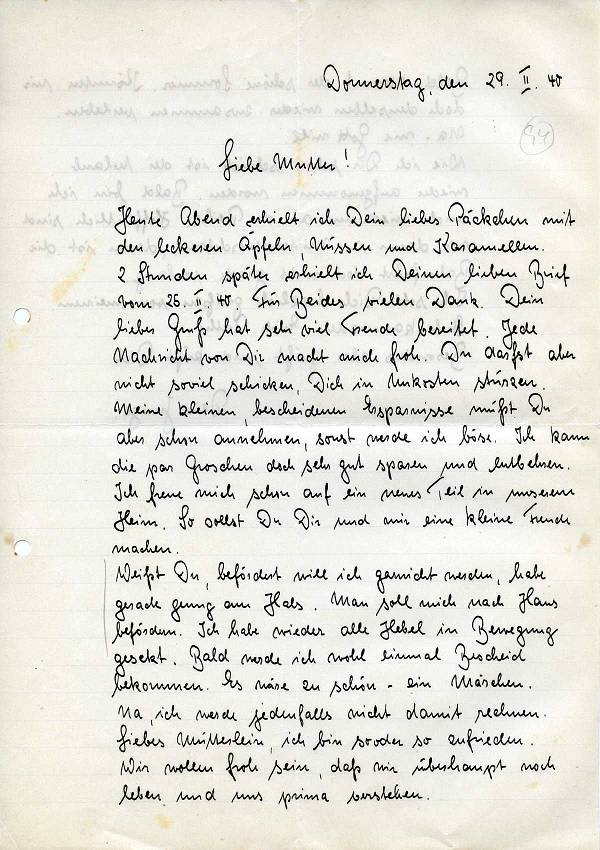 Donnerstag, den 29. II. 40
94
Liebe Mutter!
Heute Abend erhielt ich Dein liebes Päckchen mit
den leckeren Äpfeln, Nüssen und Karamellen.
2 Stunden später erhielt ich Deinen lieben Brief
vom 26. II. 40. Für Beides vielen Dank. Dein
lieber Gruß hat sehr viel Freude bereitet. Jede
Nachricht von Dir macht mich froh. Du darfst aber
nicht soviel schicken, Dich in Unkosten stürzen.
Meine kleinen, bescheidenen Ersparnisse mußt Du
aber schon annehmen, sonst werde ich böse. Ich kann
die par Groschen doch sehr gut sparen und entbehren.
Ich freue mich schon auf ein neues Teil in unserem
Heim. So sollst Du Dir und mir eine kleine Freude
machen.
Weißt Du, befördert will ich garnicht werden, habe
gerade genug am Hals. Man soll mich nach Haus
befördern. Ich habe wieder alle Hebel in Bewegung
gesetzt. Bald werde ich wohl einmal Bescheid
bekommen. Es wäre zu schön - ein Märchen.
Na, ich werde jedenfalls nicht damit rechnen.
Liebes Mütterlein, ich bin so oder so zufrieden.
Wir wollen froh sein, daß wir überhaupt noch
leben und uns prima verstehen.